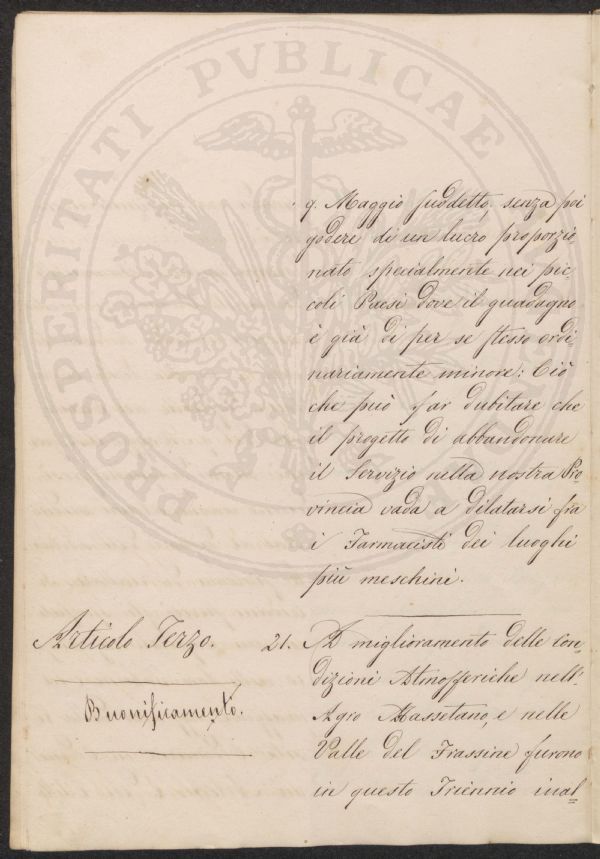 PROSPERITATI PVBLICAE
9. Maggio suddetto, senza poi
godere di un lucro proporzio
nato specialmente nei pic
coli Paesi dove il guadagno
è già di per se stesso ordi-
nariamente minore: Ciò
che può far dubitare che
il progetto di abbandonare
il Servizio nella nostra Pro
vincia vada a dilatarsi fra
i Farmacisti dei luoghi
più meschini.
Articolo Terzo.
Buonificamento.
21. A miglioramento delle con-
dizioni Atmosferiche nell'
Agro Massetano, e nelle
Valle del Frassine furono
in questo Triennio inal-